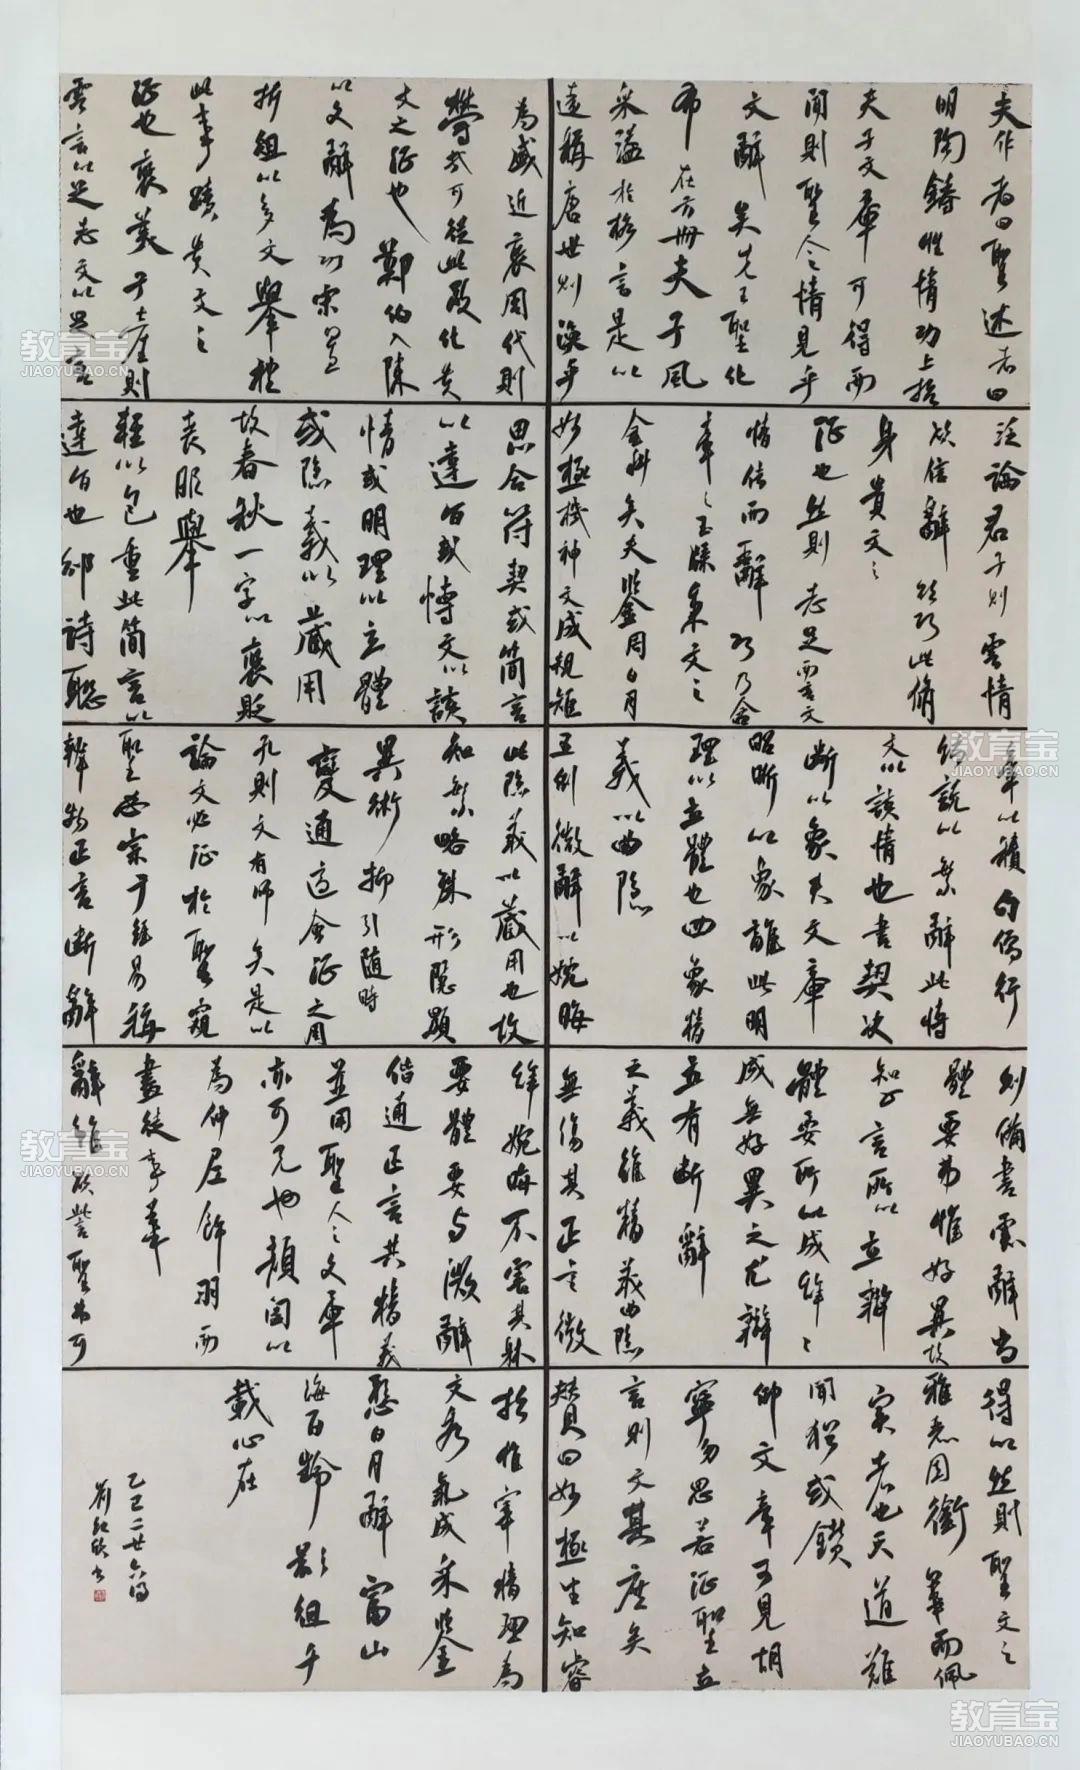 夫作者曰聖述者曰
明陶鑄性情功上哲
夫子文章可得而
聞則聖人之情見乎
文辭矣先王聖化
布在方冊夫子風
采溢於格言是以
遠稱唐世則渙乎
為盛近褒周代則
鬱哉可從此政化貴
文之征也鄭伯入陳
以文辭為功宋置
折俎以多文舉禮
此事蹟貴文之
征也褒美子產則
雲言以足志文以足言
泛論君子則雲情
欲信辭欲巧此脩
身貴文之
征也然則志足而言文
情信而辭巧乃含
章之玉牒秉文之
金科矣夫鑒周日月
妙極機神文成規矩
思合符契或簡言
以達旨或博文以該
情或明理以立體
或隱義以藏用
故春秋一字以褒貶
喪服舉
輕以包重此簡言以
達旨也邠詩聯
章以積句儒行
縟說以繁辭此博
文以該情也書契決
斷以象夬文章
昭晰以象離此明
理以立體也四象精
義以曲隱
五例微辭以婉晦
此隱義以藏用也故
知繁略殊形隱顯
異術抑引隨時
變通適會征之周
孔則文有師矣是以
論文必征於聖窺
聖必宗于經易稱
辨物正言斷辭
則備書雲辭尚
體要弗惟好異故
知正言所以立辯
體要所以成辭辭
成無好異之尤辯
立有斷辭
之義雖精義曲隱
無傷其正言微
辭婉晦不害其體
要體要與微辭
偕通正言共精義
並用聖人之文章
亦可見也顏闔以
為仲尼飾羽而
畫徒事華
辭雖欲訾聖弗可
得以然則聖文之
雅麗固銜華而佩
實者也天道難
聞猶或鑽
仰文章可見胡
寧勿思若征聖立
言則文其庶矣
贊曰妙極生知睿
哲惟宰精理為
文秀氣成采鑒
懸日月辭富山
海百齡影徂千
載心在
乙巳二廿六
教育宝
JIAOYUBAO.CN
教育宝
JIAOYUBAO.CN
教育宝
JIAOYUBAO.CN
教育宝
JIAOYUBAO.CN
教育宝
JIAOYUBAO.CN